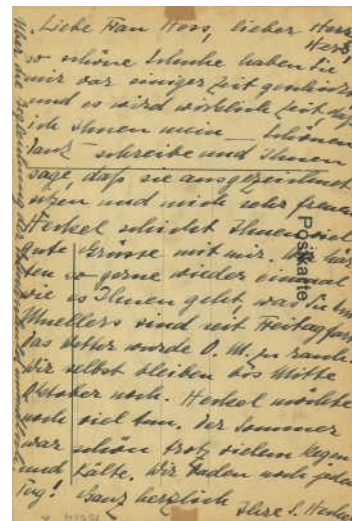 Liebe Frau Hess, lieber Herr
Hess!
so schöne Schuhe haben Sie
mir vor einiger Zeit geschickt
und es wird wirklich Zeit, daß
ich Ihnen mein – schönen
Dank – schreibe und Ihnen
sage, daß sie ausgezeichnet
sitzen und mich sehr freuen
Heckel schickt Ihnen viel
gute Grüsse mit mir. Wir hör
ten so gerne wieder einmal
wie es Ihnen geht, was Sie tun
Muellers sind seit Freitag fort
das Wetter wurde O. M. zu rauh.
Wir selbst bleiben bis Mitte
Oktober noch. Heckel möchte
noch viel tun. Der Sommer
war schön trotz vielem Regen
und Kälte. Wir baden noch jeden
Tag! Ganz herzlich
Ihre S. Heckel
Postkarte